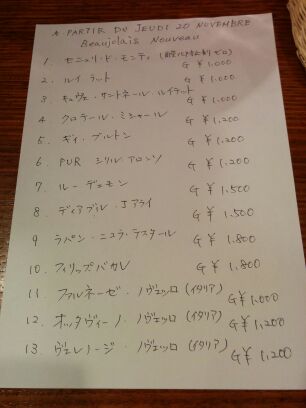 A PARTIR DU JEUDI 20 NOVEMBRE
Beaujolais Nouveau
1. セニュリ・ド・モンティ (酸化防止剤ゼロ) G ¥1,000
2. ルイ テット G ¥1,000
3 キュヴェ・サントネール・ルイテット G ¥1,000
4. クロテール・ミシャール G ¥1,200
5. ギィ・ブルトン G ¥1,200
6 PUR シリル アロンソ G ¥1,200
7. ルー・デュモン G ¥1,500
8 ディアブル・Jアライ G ¥1,500
9 ラパン・ニュラ・テスタール G ¥1,800
10. フィリップ パカレ G ¥1,800
11 ファルネーゼ・ノヴェッロ (イタリア) G ¥1,000
12. オッタヴィーノ・ノヴェッロ (イタリア) G ¥1,200
13. ヴェレノージ・ノヴェッロ (イタリア) G ¥1,200